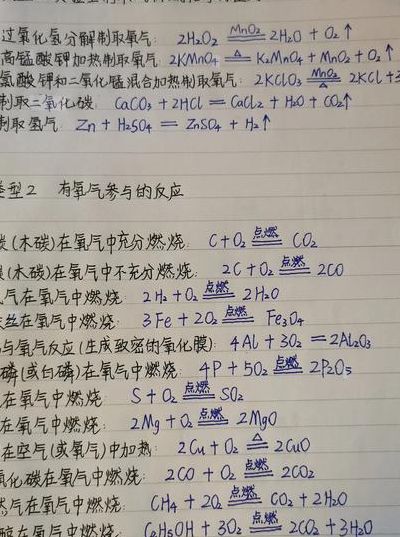 过氧化氢分解制取氧气: 2H₂O₂ =MnO₂= 2H₂O + O₂↑
高锰酸钾加热制取氧气: 2KMnO₄ =△= K₂MnO₄ + MnO₂ + O₂↑
氯酸钾和二氧化锰混合加热制取氧气: 2KClO₃ =MnO₂/△= 2KCl + 3
制取二氧化碳: CaCO₃ + 2HCl = CaCl₂ + H₂O + CO₂↑
制取氢气: Zn + H₂SO₄ = ZnSO₄ + H₂↑
类型2 有氧气参与的反应
炭(木碳)在氧气中充分燃烧: C + O₂ =点燃= CO₂
(木碳)在氧气中不充分燃烧: 2C + O₂ =点燃= 2CO
气在氧气中燃烧 2H₂ + O₂ =点燃= 2H₂O
丝在氧气中燃烧: 3Fe + 2O₂ =点燃= Fe₃O₄
与氧气反应(生成致密的氧化膜): 4Al + 3O₂ = 2Al₂O₃
磷(或白磷)在氧气中燃烧: 4P + 5O₂ =点燃= 2P₂O₅
在氧气中燃烧: S + O₂ =点燃= SO₂
在氧气中燃烧: 2Mg + O₂ =点燃= 2MgO
在空气(或氧气)中加热: 2Cu + O₂ =△= 2CuO
氧化碳在氧气中燃烧: 2CO + O₂ =点燃= 2CO₂
气在氧气中燃烧: CH₄ + 2O₂ =点燃= CO₂ + 2H₂O
醇在氧气中燃烧: C₂H₅OH + 3O₂ =点燃= 2CO₂ + 3H₂O